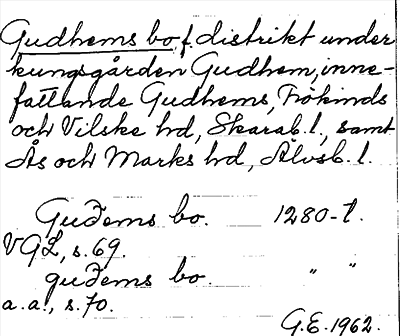 Gudhems bo, f. distrikt under
kungsgården Gudhem, inne-
fattande Gudhems, Frökinds
och Vilske hd, Skarab. l., samt
Ås och Marks hd, Älvsb. l.
Guðems bo. 1280-t.
VGL, s. 69.
guðems bo. " "
a.a., s. 70.
G.E. 1962.